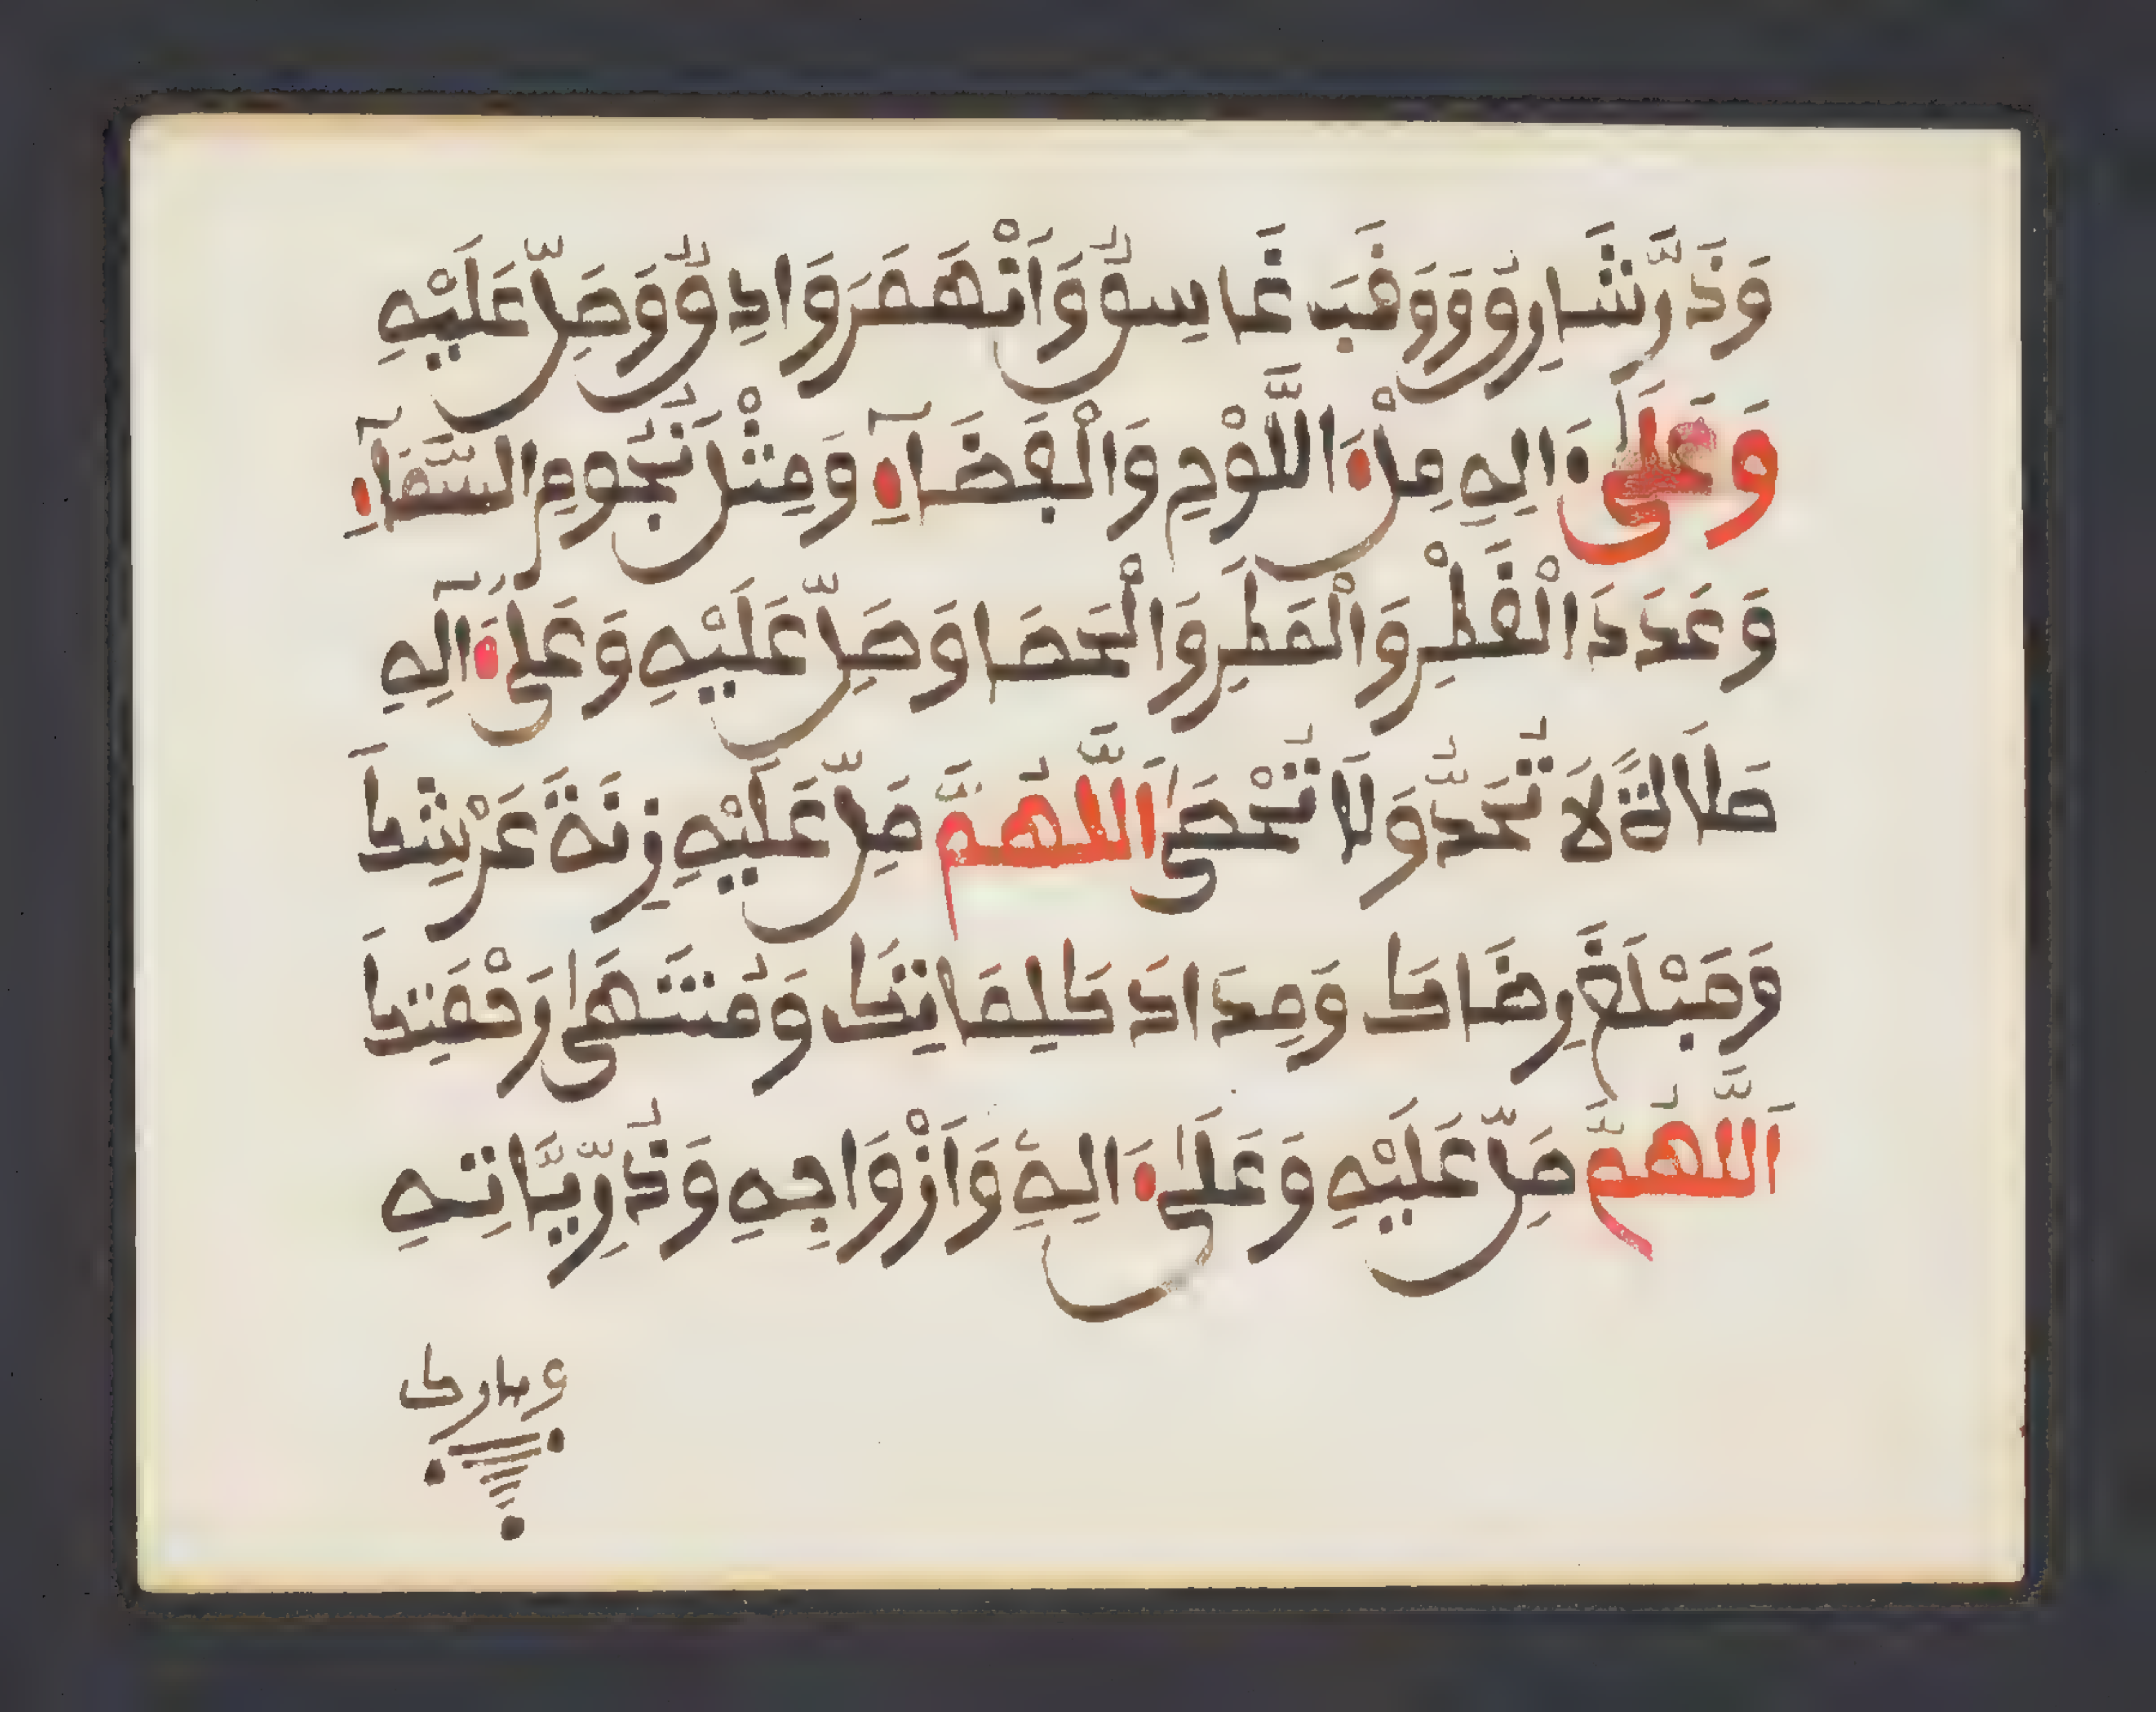 وَذَرَّ شَارِقٌ وَوَقَبَ غَاسِقٌ وَانْهَمَرَ وَادِقٌ وَصَلِّ عَلَيْهِ
وَعَلَىٰ ءَالِهِ مِلْءَ اللَّوْحِ وَالْفَضَآءِ وَمِثْلَ نُجُومِ السَّمَآءِ
وَعَدَدَ الْقَطْرِ وَالْمَطَرِ وَالْحَصَا وَصَلِّ عَلَيْهِ وَعَلَىٰ ءَالِهِ
صَلَاةً لَا تُعَدُّ وَلَا تُحْصَىٰ اَللَّهُمَّ صَلِّ عَلَيْهِ زِنَةَ عَرْشِكَ
وَمَبْلَغَ رِضَاكَ وَمِدَادَ كَلِمَاتِكَ وَمُنتَهَىٰ رَحْمَتِكَ
اَللَّهُمَّ صَلِّ عَلَيْهِ وَعَلَىٰ ءَالِهِ وَأَزْوَاجِهِ وَذُرِّيَّاتِهِ
وبارك